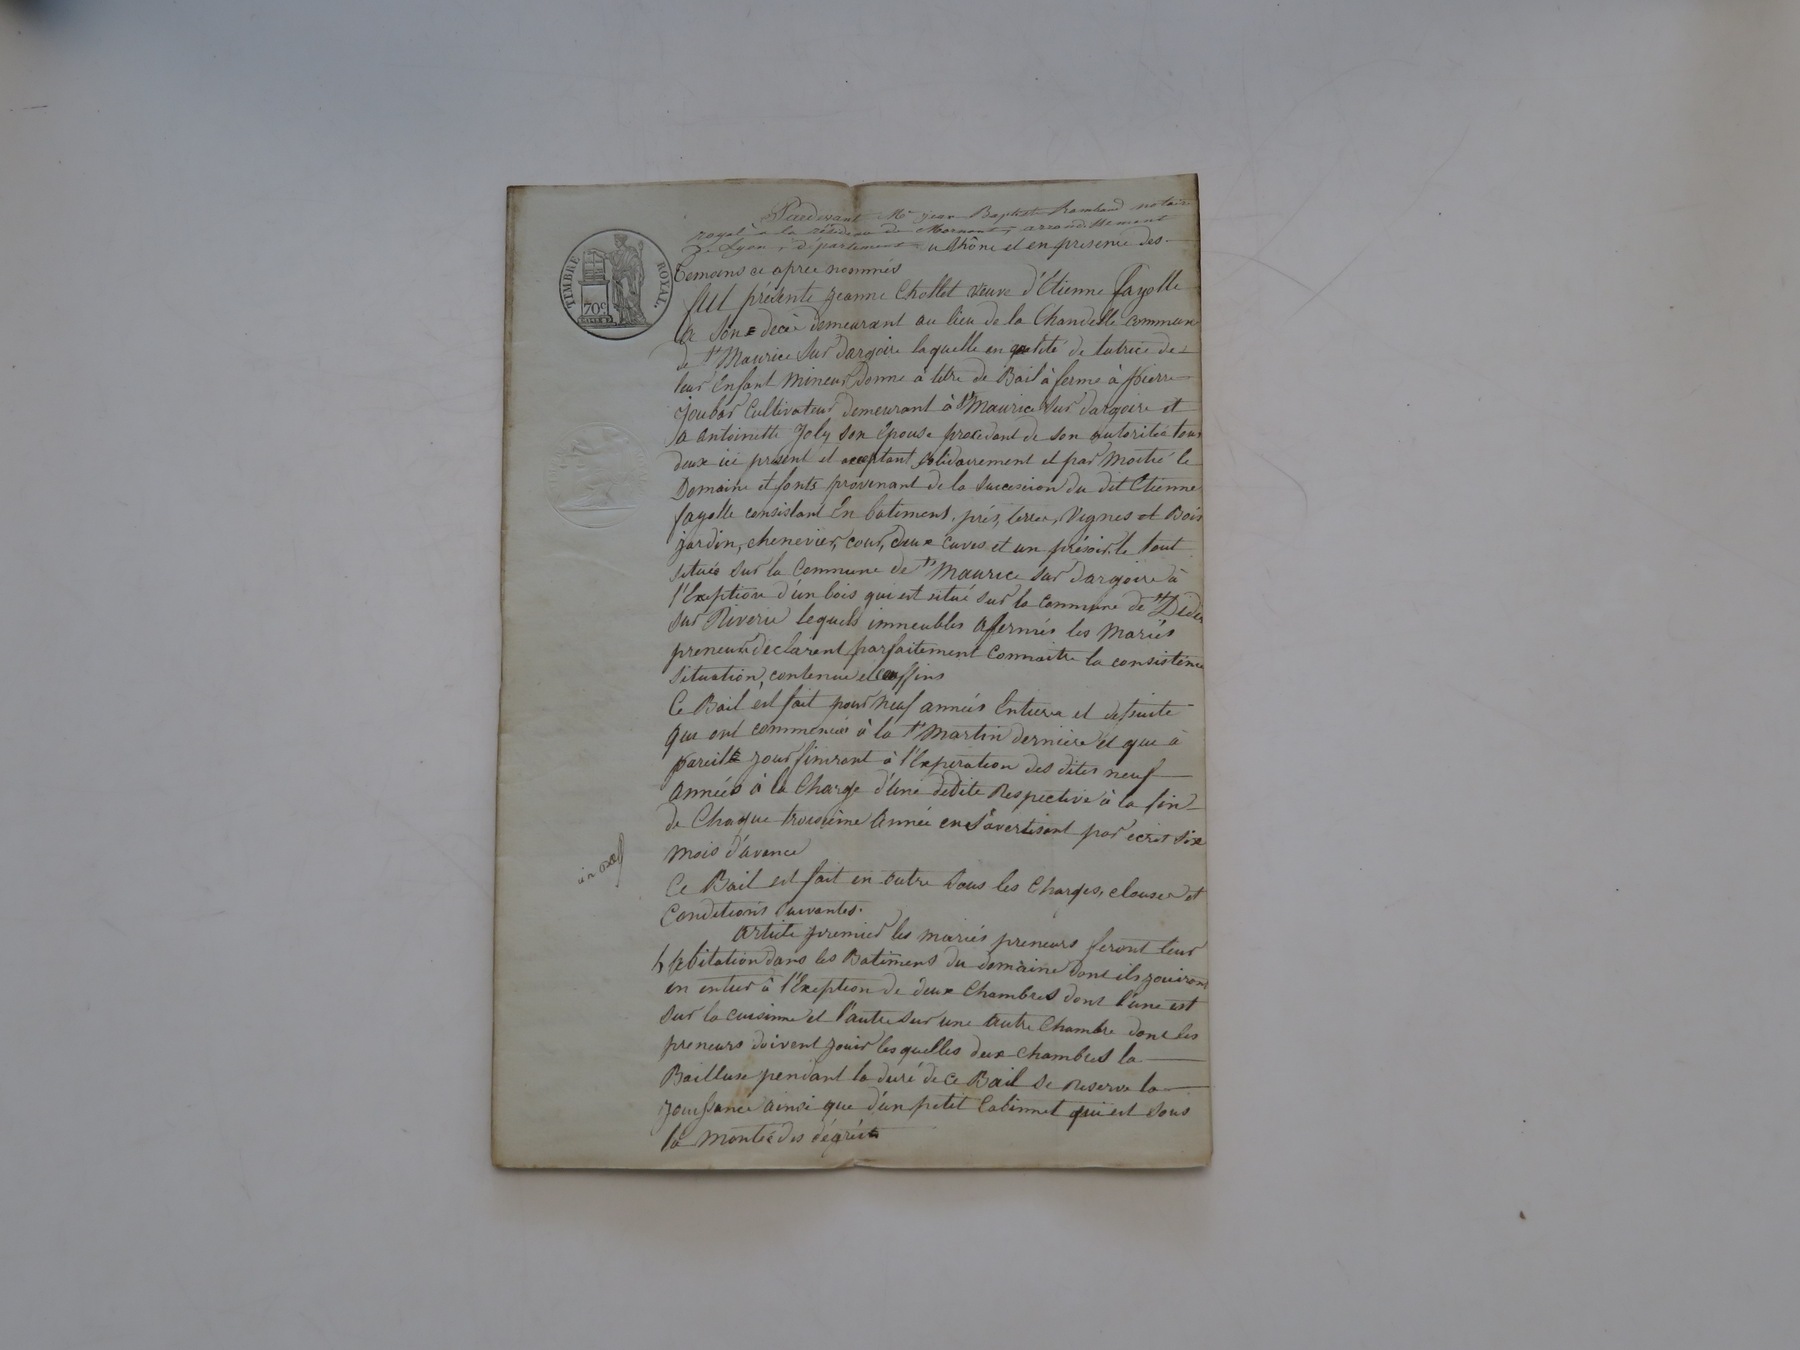 TIMBRE ROYAL.
70c
Pardevant Me Jean Baptiste Rambaud notaire
royal à la résidence de Mornant, arrondissement
De Lyon, département du Rhône et en presence des
temoins ci apres nommés
fut présente Jeanne Chollet veuve d'Etienne fayolle
a son decès demeurant au lieu de la Chandelle commune
de St Maurice sur dargoire laquelle en qualité de tutrice de
leur Enfant Mineur, donne à titre de Bail à ferme à Pierre
Joubar Cultivateur demeurant à St Maurice sur dargoire et
a antoinette Joly son Epouse procedant de son autorité tous
deux ici present et acceptant solidairement et par Moitié le
Domaine et fonts provenant de la succession du dit Etienne
fayolle consistant En batiment, prés, terres, Vignes et Bois
jardin, chenevier, cour, deux cuves et un présoir, le tout
situés sur la Commune de St Maurice sur dargoire à
l'Exeption d'un bois qui est situé sur la Commune de St Didier
sur Riverie lequels immeubles afermés les Mariés
preneurs déclarent parfaitement Connaitre la consistence
situation, contenue et confins
Ce Bail est fait pour neuf années Entiere et de suite
que ont commencés à la St Martin derniere et que à
pareille jour finiront à l'Expiration des dites neuf
années à la Charge d'une dédite Respective à la fin
de Chaque troisième année en s'avertisant par écrit six
mois d'avance
Ce Bail est fait en outre sous les Charges, clouses et
Conditions suivantes.
article premier les mariés preneurs feront leur
habitation dans les Batimens du domaine dont ils jouiront
en entier à l'Exeption de deux Chambres dont l'une est
sur la cuisinne et l'autre sur une autre Chambre dont les
preneurs doivent jouir lesquelles deux chambres la
Bailleuse pendant la duré de ce Bail se reserve la
jouissance ainsi que d'un petit Cabinnet qui est sous
la montée des dégrés